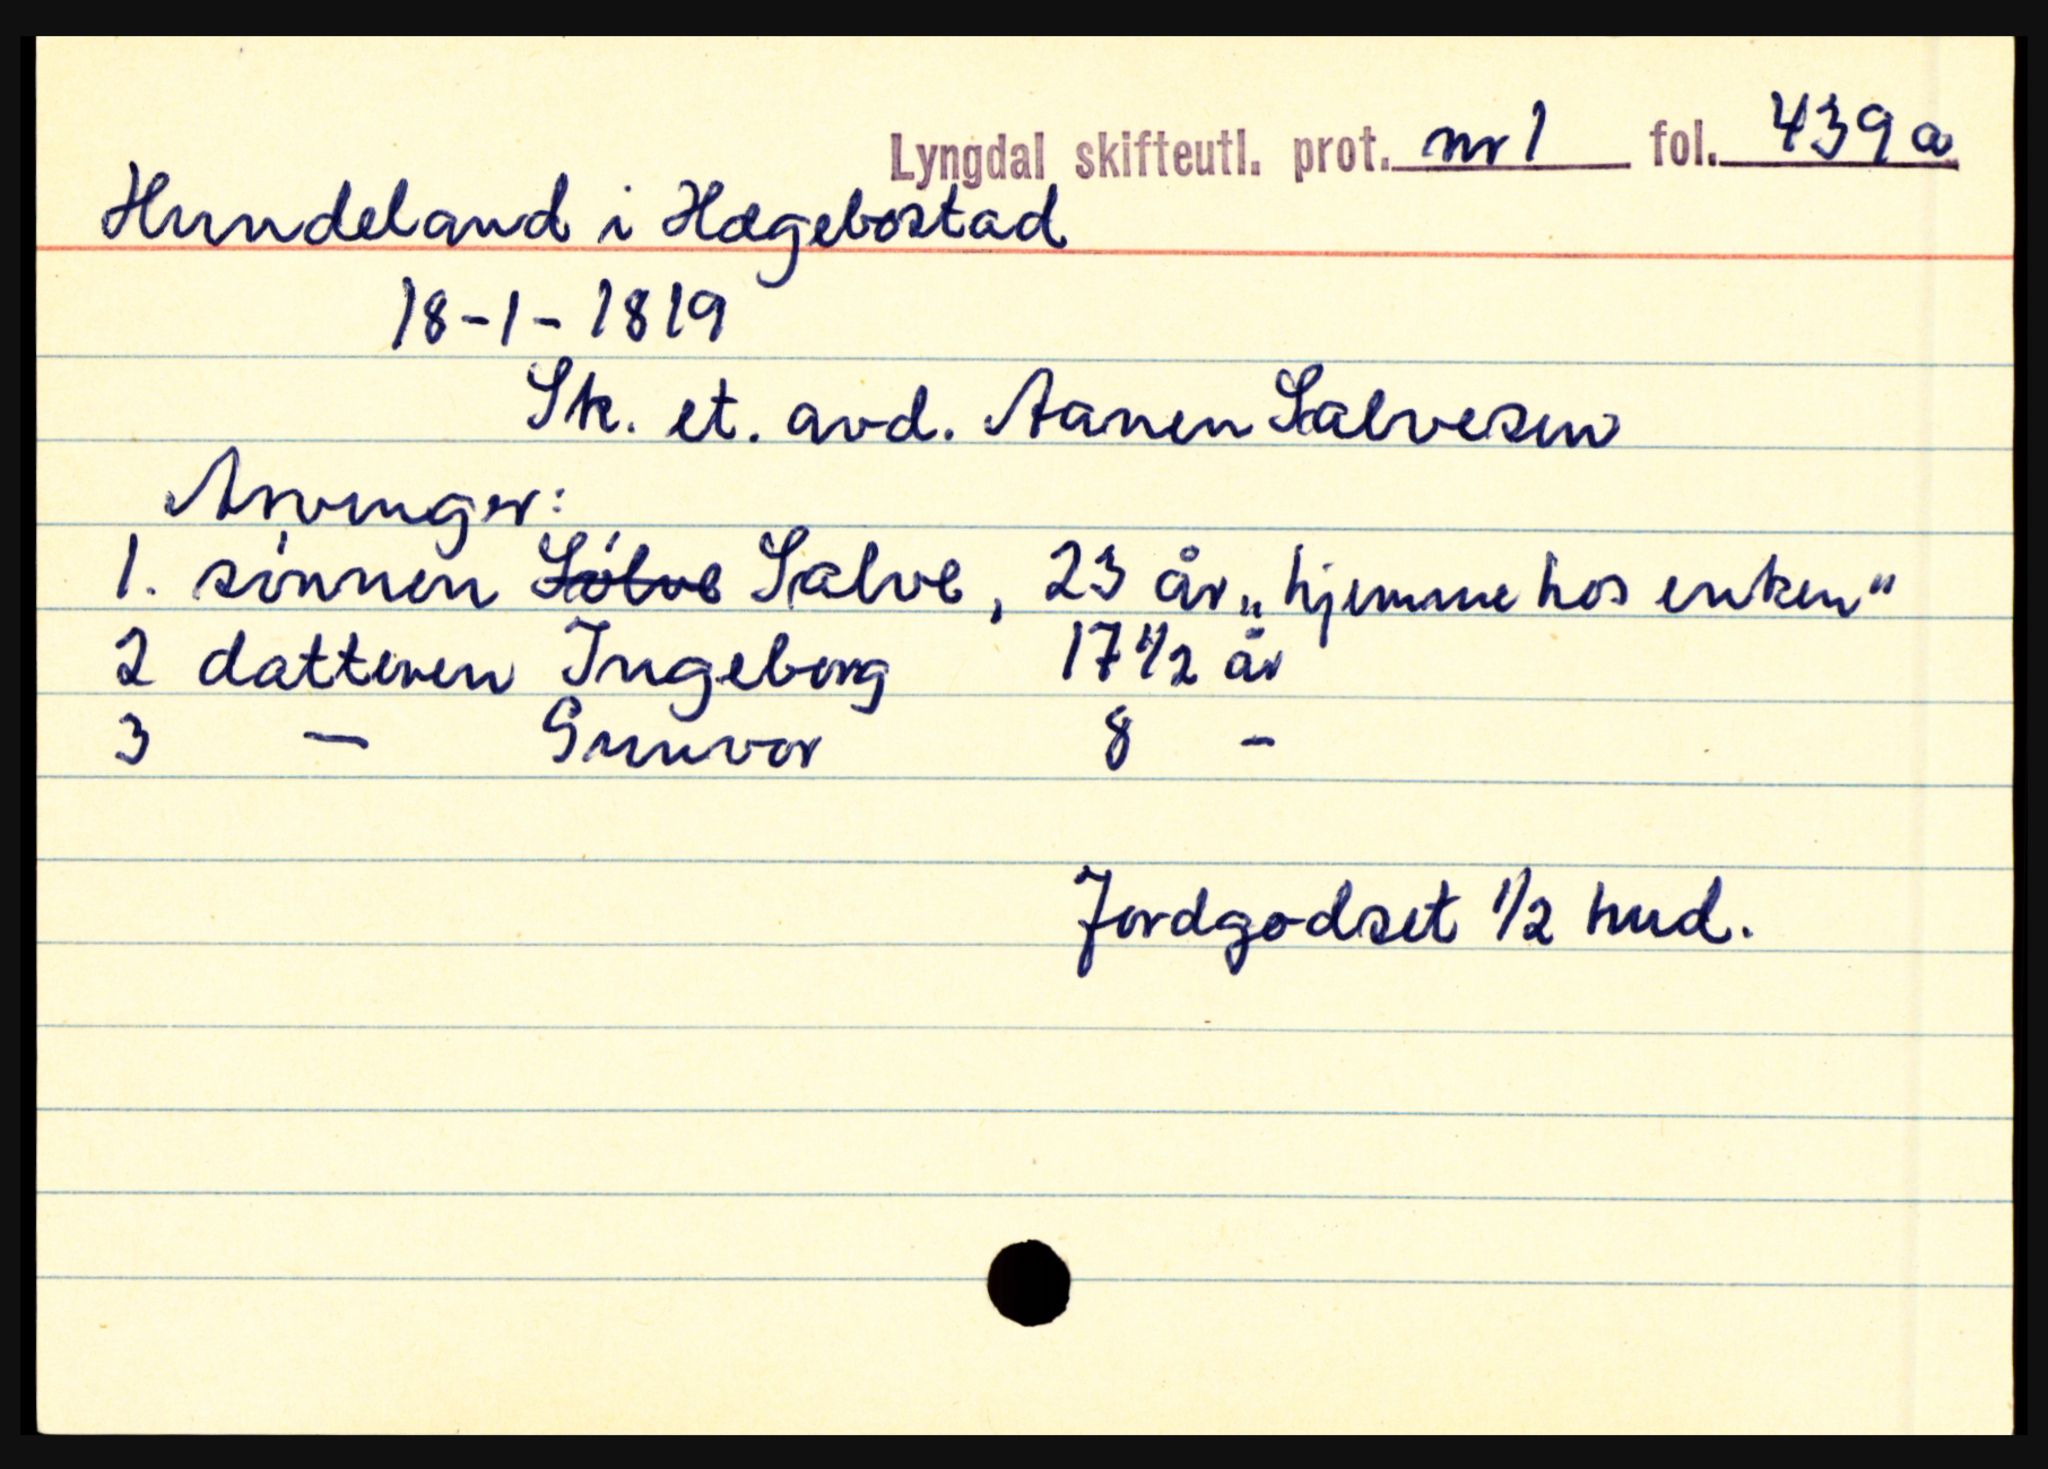 Lyngdal skifteutl. prot. nr 1 fol. 439a
Hundeland i Hægebostad
18-1-1819
Sk. et. avd. Aanen Salvesen
Arvinger:
1. sønnen Sølve Salve, 23 år „hjemme hos enken"
2 datteren Ingeborg 17 1/2 år
3 — Gunvor 8 -
Jordgodset 1/2 hud.